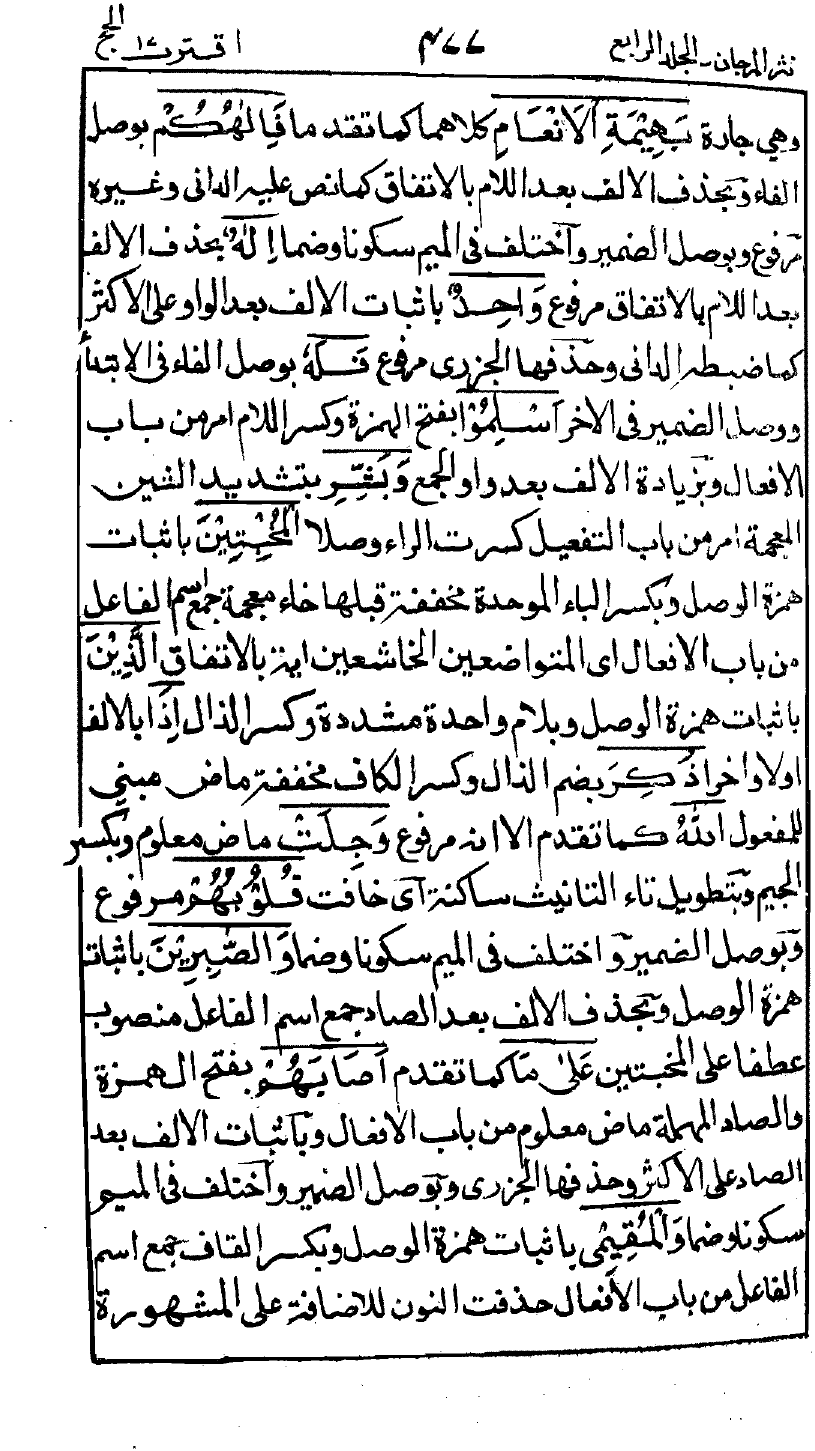 نثر المرجان - الجلد الرابع ٤٧٧ اقترب ١٧ الحج
وهي جارة بَهِيْمَةِ الْاَنْعَامِ كلاهما كما تقدما فَاِلٰهُكُمْ بوصل
الفاء وبحذف الالف بعد اللام بالاتفاق كما نص عليه الدانى وغيره
مرفوع وبوصل الضمير واختلف فى الميم سكونا وضما اِلٰهٌ بحذف الالف
بعد اللام بالاتفاق مرفوع وَاحِدٌ باثبات الالف بعد الواو على الاكثر
كما ضبطه الدانى وحذفها الجزرى مرفوع فَلَهٗ بوصل الفاء فى الابتدأ
ووصل الضمير فى الاخر اَسْلِمُوْا بفتح الهمزة وكسر اللام امر من باب
الافعال وبزيادة الالف بعد واو الجمع وَبَشِّرِ بتشديد الشين
المعجمة امر من باب التفعيل كسرت الراء وصلا الْمُخْبِتِيْنَ باثبات
همزة الوصل وبكسر الباء الموحدة مخففة قبلها خاء معجمة جمع اسم الفاعل
من باب الافعال اى المتواضعين الخاشعين اية بالاتفاق الَّذِيْنَ
باثبات همزة الوصل وبلام واحدة مشددة وكسر الذال اِذَا بالالف
اولا واخرا ذُكِرَ بضم الذال وكسر الكاف مخففة ماض مبنى
للمفعول اللّٰهُ كما تقدم الا انه مرفوع وَجِلَتْ ماض معلوم وبكسر
الجيم وبتطويل تاء التانيث ساكنة اى خافت قُلُوْبُهُمْ مرفوع
وبوصل الضمير واختلف فى الميم سكونا وضما وَالصّٰبِرِيْنَ باثبات
همزة الوصل وبحذف الالف بعد الصاد جمع اسم الفاعل منصوب
عطفا على المخبتين عَلٰى مَا كما تقدم اَصَابَهُمْ بفتح الهمزة
والصاد المهملة ماض معلوم من باب الافعال وباثبات الالف بعد
الصاد على الاكثر وحذفها الجزرى وبوصل الضمير واختلف فى الميم
سكونا وضما وَالْمُقِيْمِى باثبات همزة الوصل وبكسر القاف جمع اسم
الفاعل من باب الافعال حذفت النون للاضافة على المشهورة